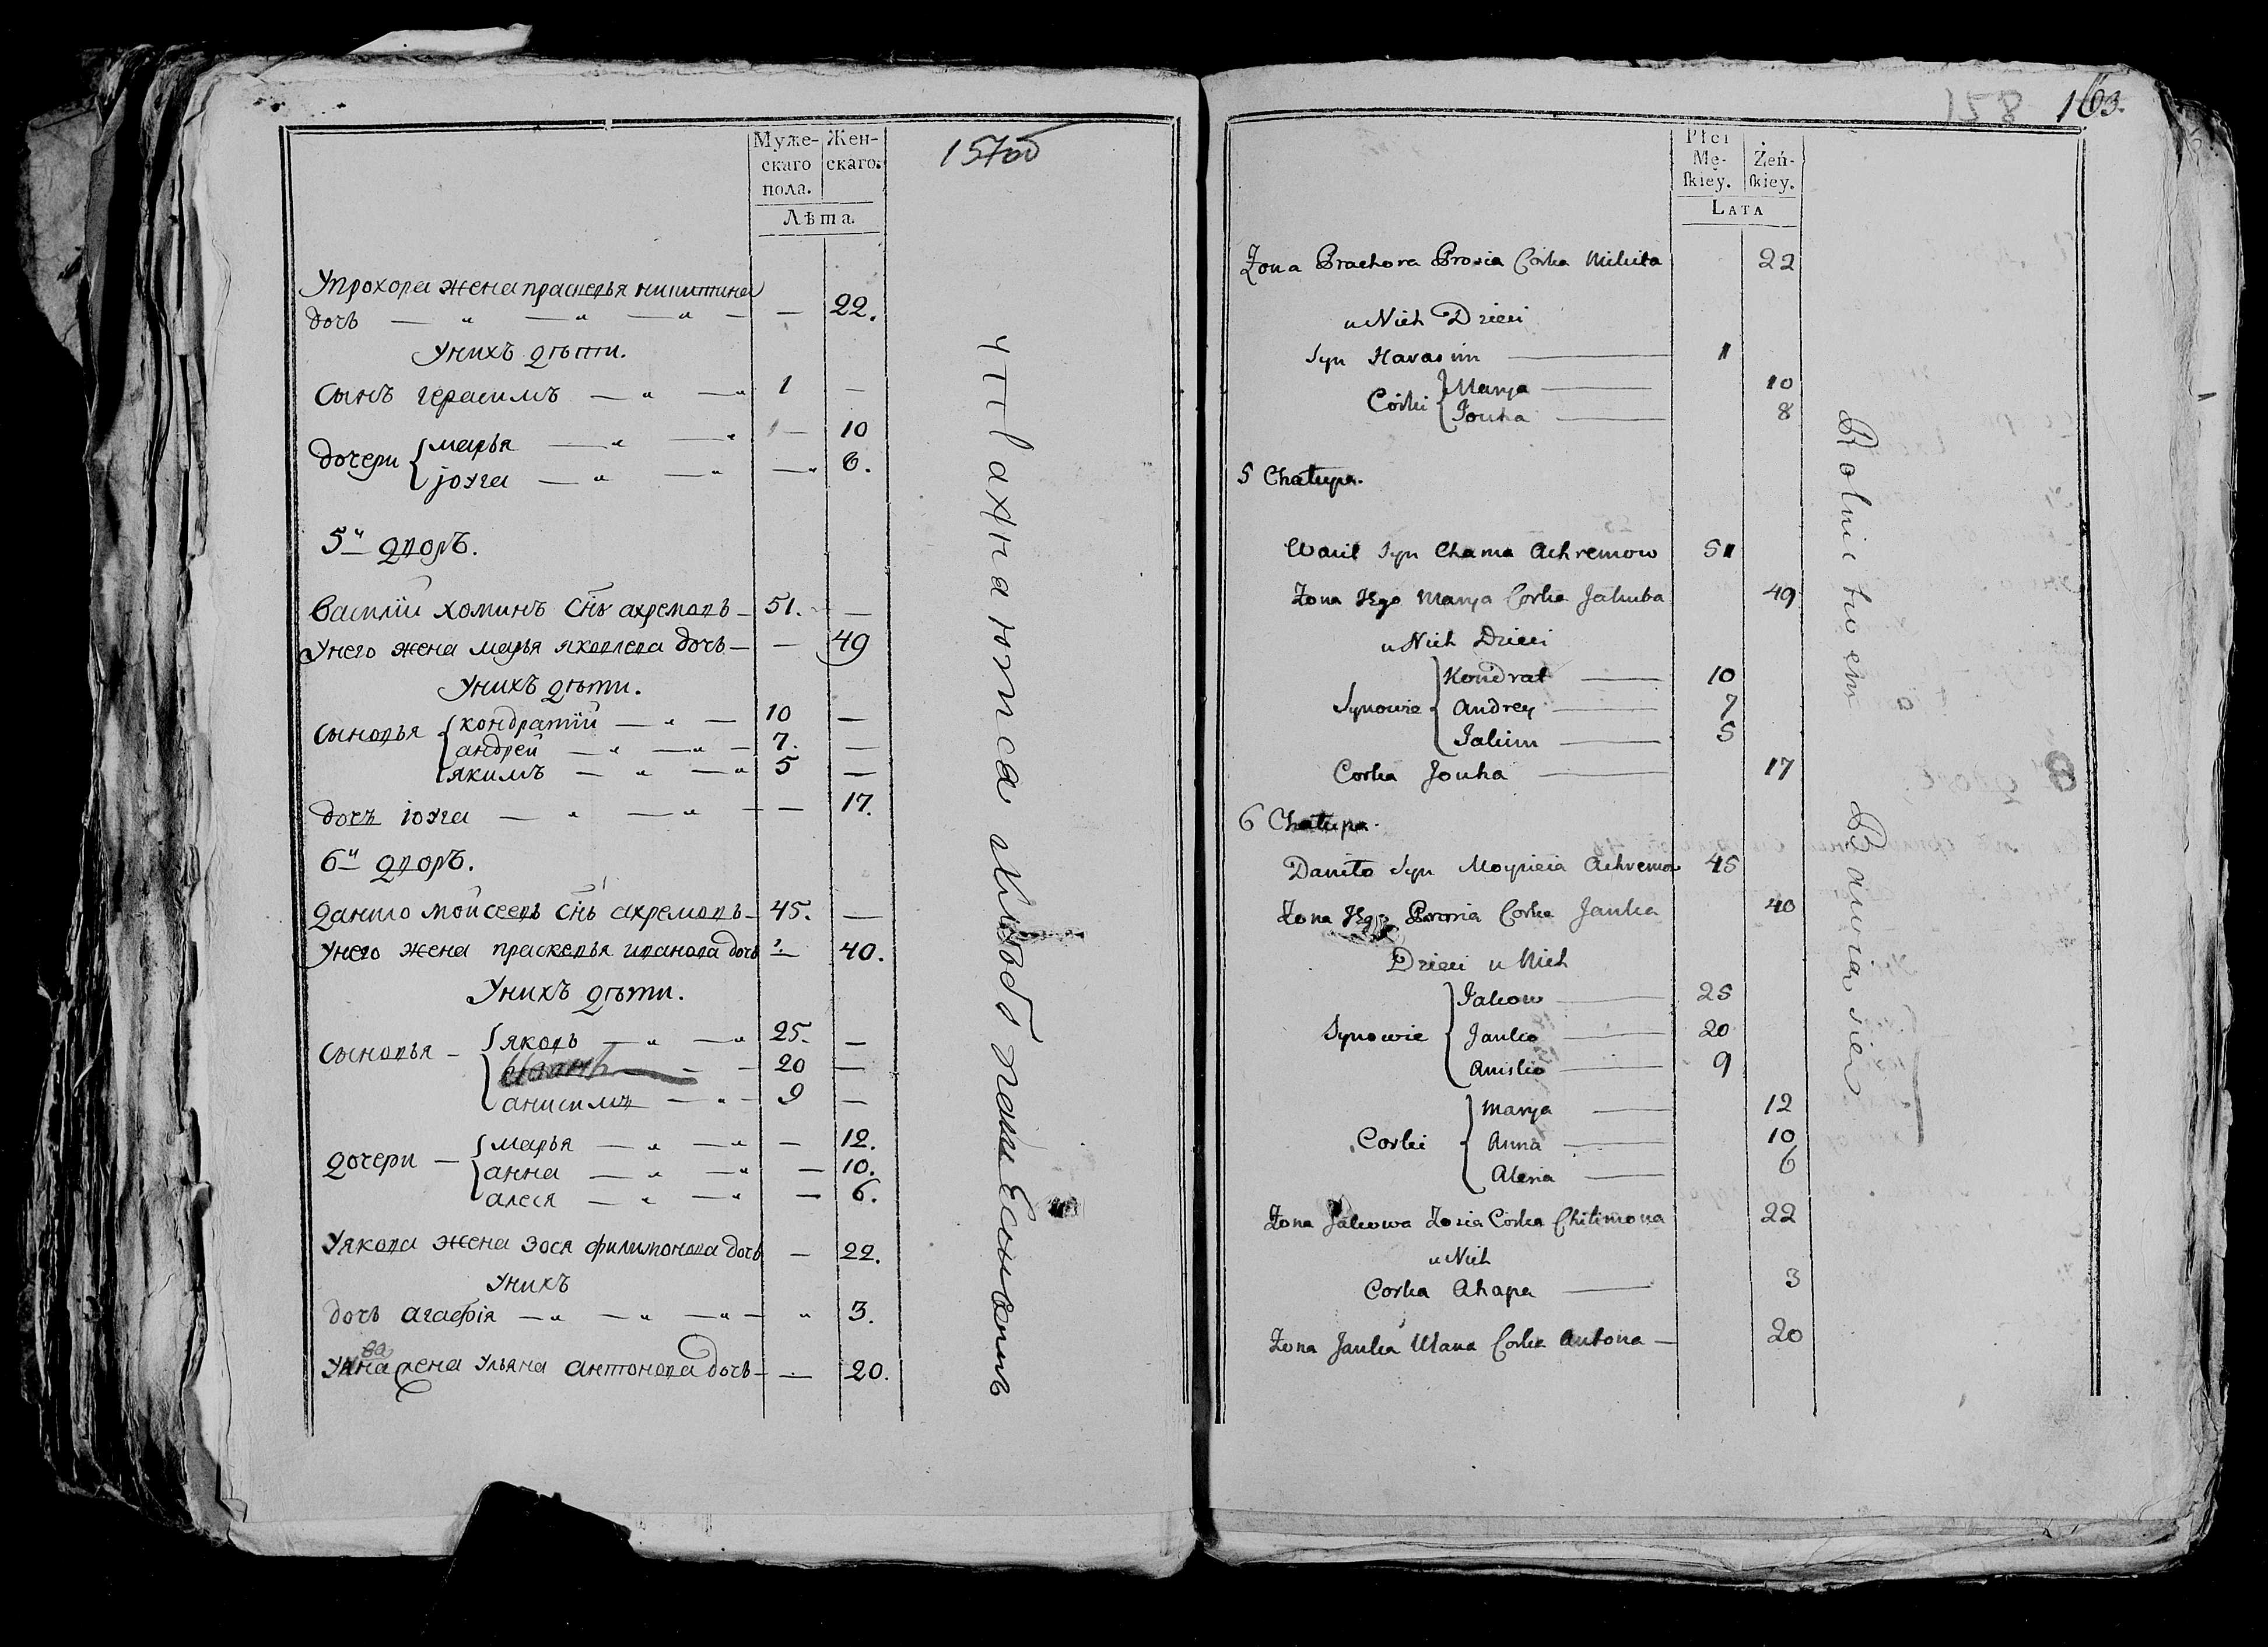 Муже-
скаго
пола.
Жен-
скаго.
Лѣта.
157об
У прохора жена прасковья никитина
дочь — „ — „ — „ — — 22.
У нихъ дѣти.
Сынъ герасимъ — „ — „ 1 —
дочери { марья — „ — „ — 10
югга — „ — „ — „ 8.
5й дворъ.
Василій хоминъ снъ ахремовъ — 51. —
У него жена марья яковлева дочь — — 49
У нихъ дѣти.
Сыновья { кондратій — „ — 10 —
андрей — „ — „ — 7. —
якимъ — „ — „ 5 —
дочь югга — „ — „ — — 17.
6й дворъ.
данило моисеевъ снъ ахремовъ — 45. —
У него жена прасковья иванова дочь — 40.
У нихъ дѣти.
Сыновья — { яковъ — „ — „ 25. —
Иванъ — — 20 —
анисимъ — „ — 9 —
дочери — { марья — „ — „ — 12.
анна — „ — „ — 10.
алеся — „ — „ — 6.
У якова жена зося филимонова дочь — 22.
У нихъ
дочь агафія — „ — „ — „ — „ 3.
У ивана жена ульяна антонова дочь — — 20.
упражняются хлѣбопашествомъ
158 163.
Płci
Mę-
skiey.
Żeń-
skiey.
LATA
Zona Prachora Prosia Corka Mikita 22
u Nich Dzieci
Syn Harasim — 1
Córki { Marya — 10
Jouha — 8
5 Chałupa.
Wasil Syn Choma Achremow 51
Zona Jego Marya Corka Jakuba 49
u Nich Dzieci
Synowie { Kondrat — 10
Andrey — 7
Jakim — 5
Corka Jouha — 17
6 Chałupa.
Daniło Syn Moysieia Achremow 45
Zona Jego Prosia Corka Janka 40
Dzieci u Nich
Synowie { Jakow — 25
Janko — 20
Anisko — 9
Corki { Marya — 12
Anna — 10
Alesia — 6
Zona Jakowa Zosia Corka Chilimona 22
u Nich
Corka Ahapa — 3
Zona Janka Ulana Corka Antona — 20
Rolnictwem Bawia sie